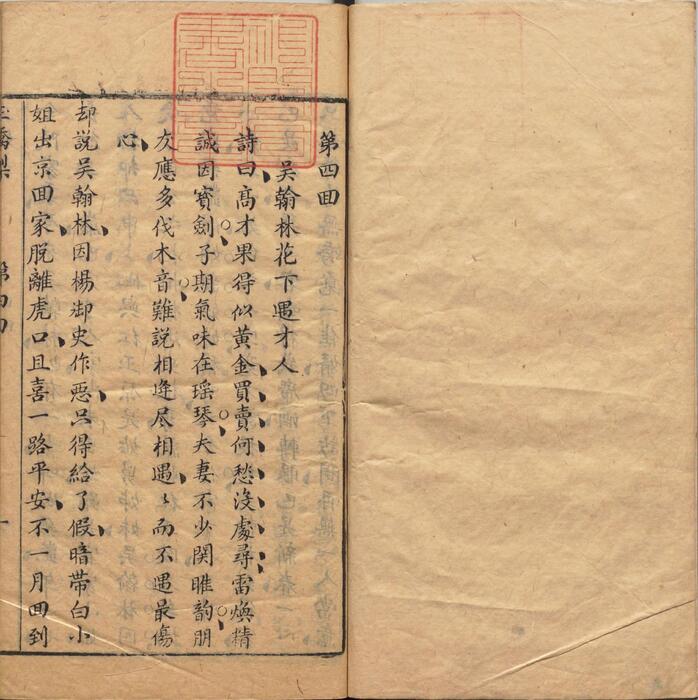 第四回
吳翰林花下遇才人
詩曰髙才果得似黄金買賣何愁沒處尋雷煥精
誠因寳劍子期氣味在瑶琴夫妻不少関睢韵朋
友應多伐木音難說相逢尽相遇〻而不遇最傷
心
却說吳翰林因楊御史作惡只得給了假暗带白小
姐出京回家脱離虎口且喜一路平安不一月回到
玉嬌梨 第四回 一